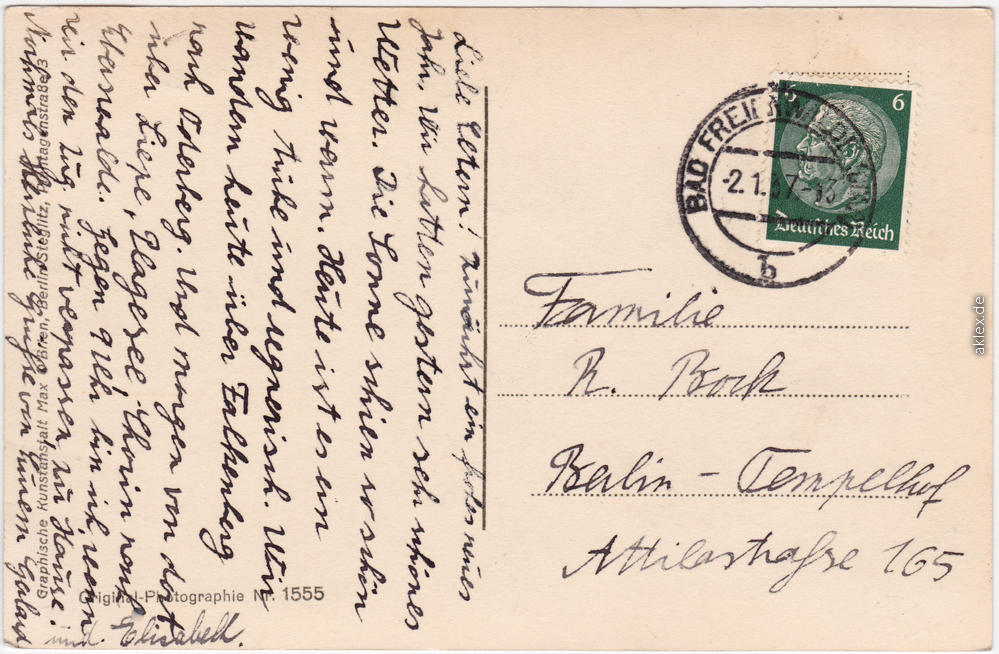 Liebe Eltern! Zunächst ein frohes neues
Jahr. Wir hatten gestern sehr schönes
Wetter. Die Sonne schien so schön
und warm. Heute ist es ein
wenig trübe und regnerisch. Wir
wandern heute über Falkenberg
nach Oderberg. Und morgen von dort
über Liepe, Plagesee, Chorin nach
Eberswalde. Gegen 9 Uhr bin ich wenn
wir den Zug nicht verpassen zu Hause!
Nochmals Grüße von Eurem
und Elisabeth.
Graphische Kunstanstalt Max O'Brien, Berlin-Steglitz,
Original-Photographie Nr. 1555
BAD FREIENWALDE (ODER)
-2.1.37.-13
b
6
Deutsches Reich
Familie
R. Bock
Berlin - Tempelhof
Attilastraße 165
aklex.de